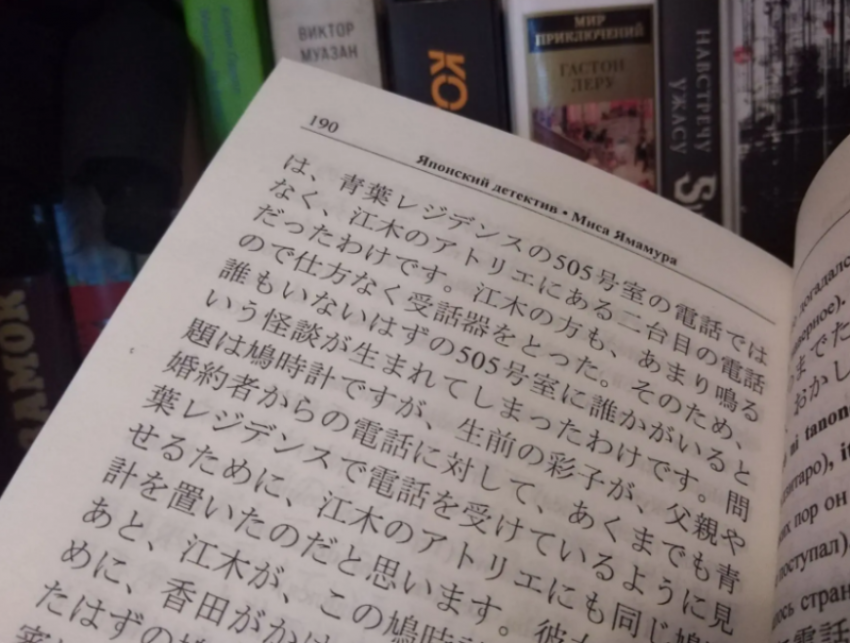 ВИКТОР
МУАЗАН
КО
МИР
ПРИКЛЮЧЕНИЙ
ГАСТОН
ЛЕРУ
НАВСТРЕЧУ
УЖАСУ
190
Японский детектив • Миса Ямамура
は、青葉レジデンスの505号室の電話では
なく、江木のアトリエにある二台目の電話
だったわけです。江木の方も、あまり鳴る
ので仕方なく受話器をとった。そのため、
誰もいないはずの505号室に誰かがいると
いう怪談が生まれてしまったわけです。問
題は鳩時計ですが、生前の彩子が、父親や
婚約者からの電話に対して、あくまでも青
葉レジデンスで電話を受けているように見
せるために、江木のアトリエにも同じ鳩
計を置いたのだと思います。彼
あと、江木が、この鳩時
めに、香田がか
たはずの
догадалс
верное).
までた
おかし
ni tanon
нтаро), it
их пор он
поступал)
лось стран
電話